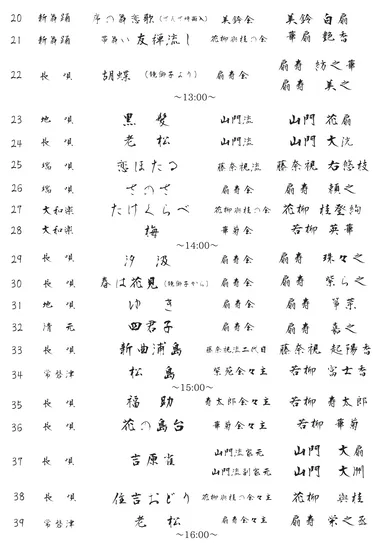 20 新舞踊 序の舞恋歌 美鈴会 美鈴 白扇
21 新舞踊 友禅流し 花柳與桂の会 華扇 艶香
22 長 唄 胡蝶 (鏡獅子より) 扇寿会 扇寿 紡之華
扇寿 美之
〜13:00〜
23 地 唄 黒 髪 山門流 山門 花扇
24 長 唄 老 松 山門流 山門 大洸
25 端 唄 恋ほたる 藤奈視流 藤奈視 右悠枝
26 端 唄 さのさ 扇寿会 扇寿 頼之
27 大和楽 たけくらべ 花柳與桂の会 花柳 桂登絢
28 大和楽 梅 華菊会 若柳 英華
〜14:00〜
29 長 唄 汐 汲 扇寿会 扇寿 珠々之
30 長 唄 春は花見 (鏡獅子から) 扇寿会 扇寿 紫ら之
31 地 唄 ゆ き 扇寿会 扇寿
32 清 元 四君子 扇寿会 扇寿 喜之
33 長 唄 新曲浦島 藤奈視流二代目 藤奈視 起陽香
34 常磐津 松 島 紫苑会々主 若柳 富士香
〜15:00〜
35 長 唄 福 助 寿太郎会々主 若柳 寿太郎
36 長 唄 花の島台 華菊会々主 若柳 華菊
37 長 唄 吉原雀 山門流家元 山門 大扇
山門流副家元 山門 大洲
38 長 唄 住吉おどり 花柳與桂の会々主 花柳 與桂
39 常磐津 老 松 扇寿会々主 扇寿 栄之丞
〜16:00〜